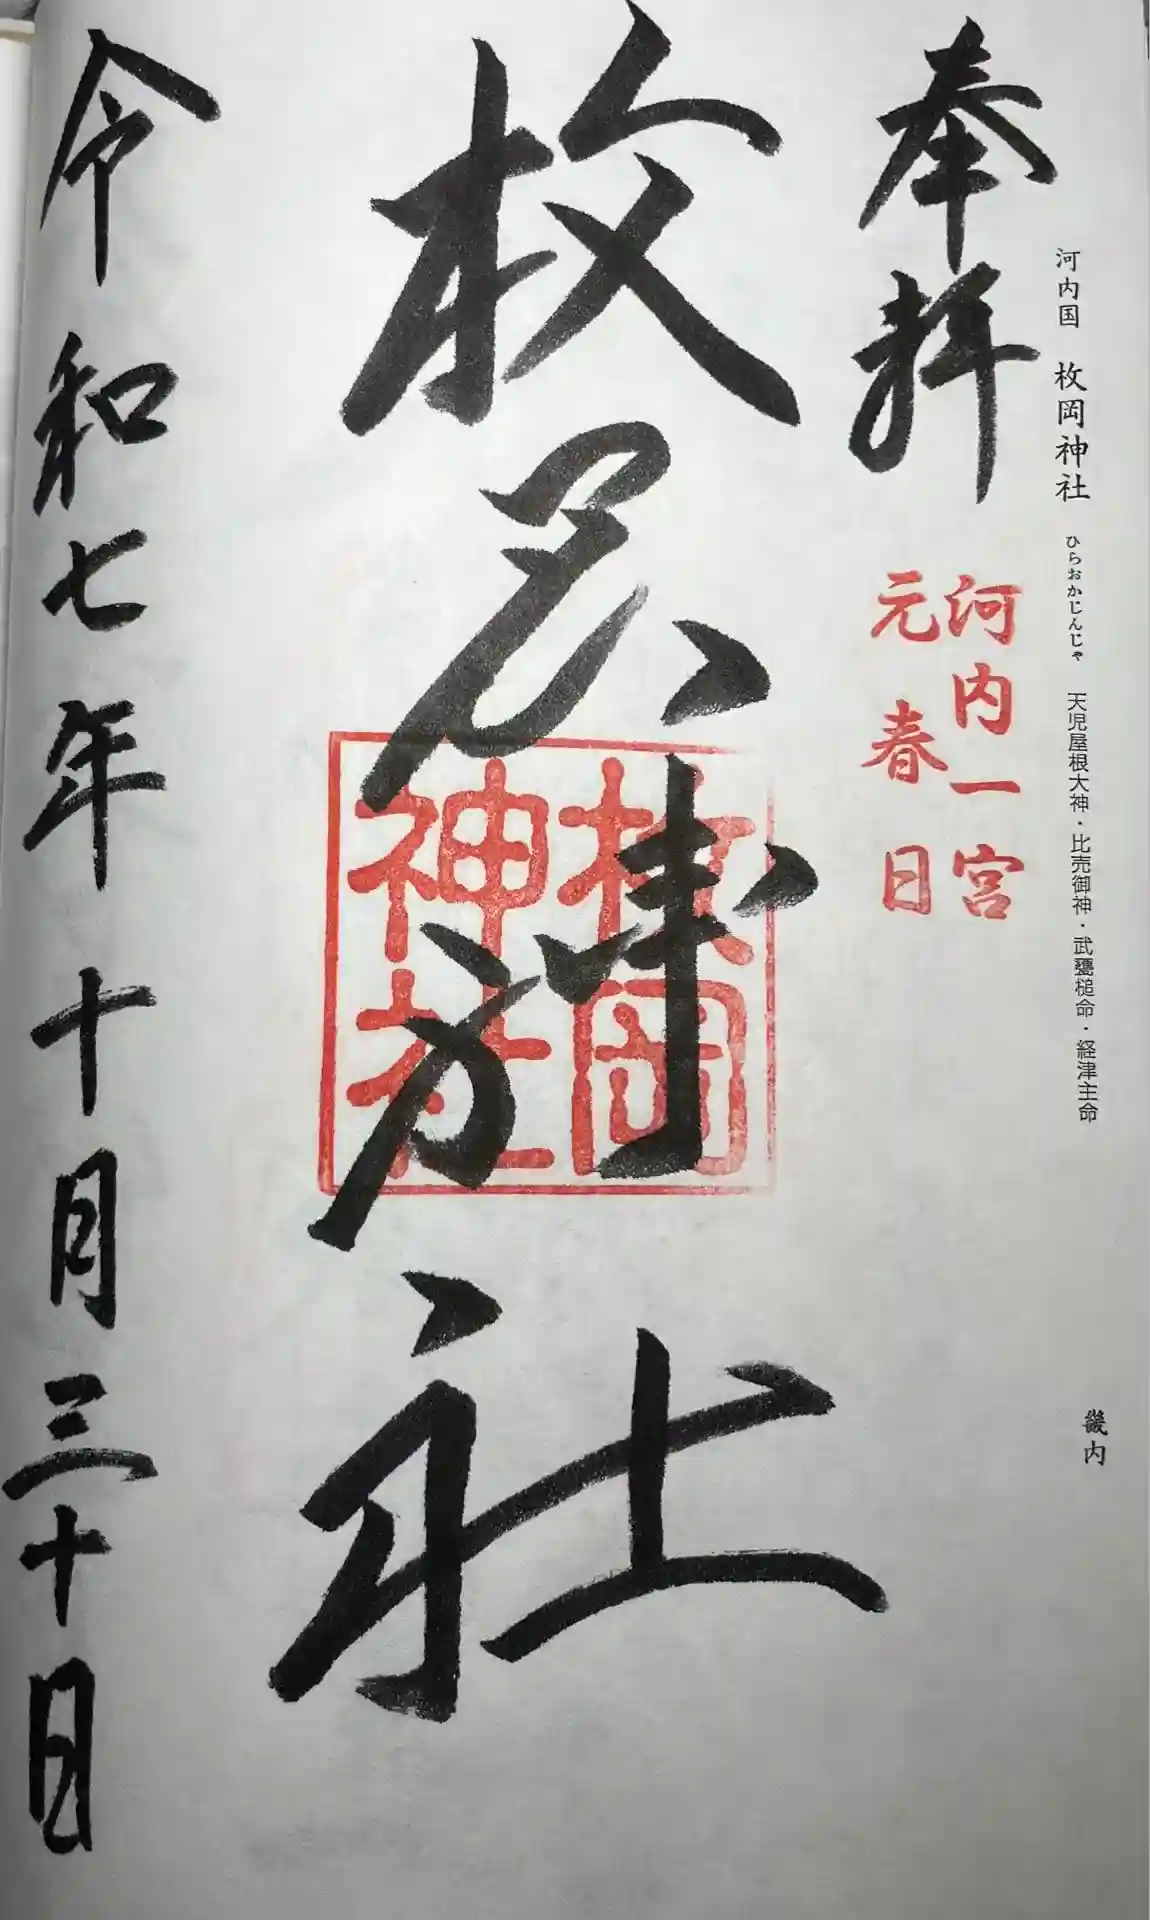 河内国 枚岡神社 ひらおかじんじゃ 天児屋根大神・比売御神・武甕槌命・経津主命
畿内
奉拝
河内一宮
元春日
枚岡神社
枚岡
神社
令和七年十月三十日